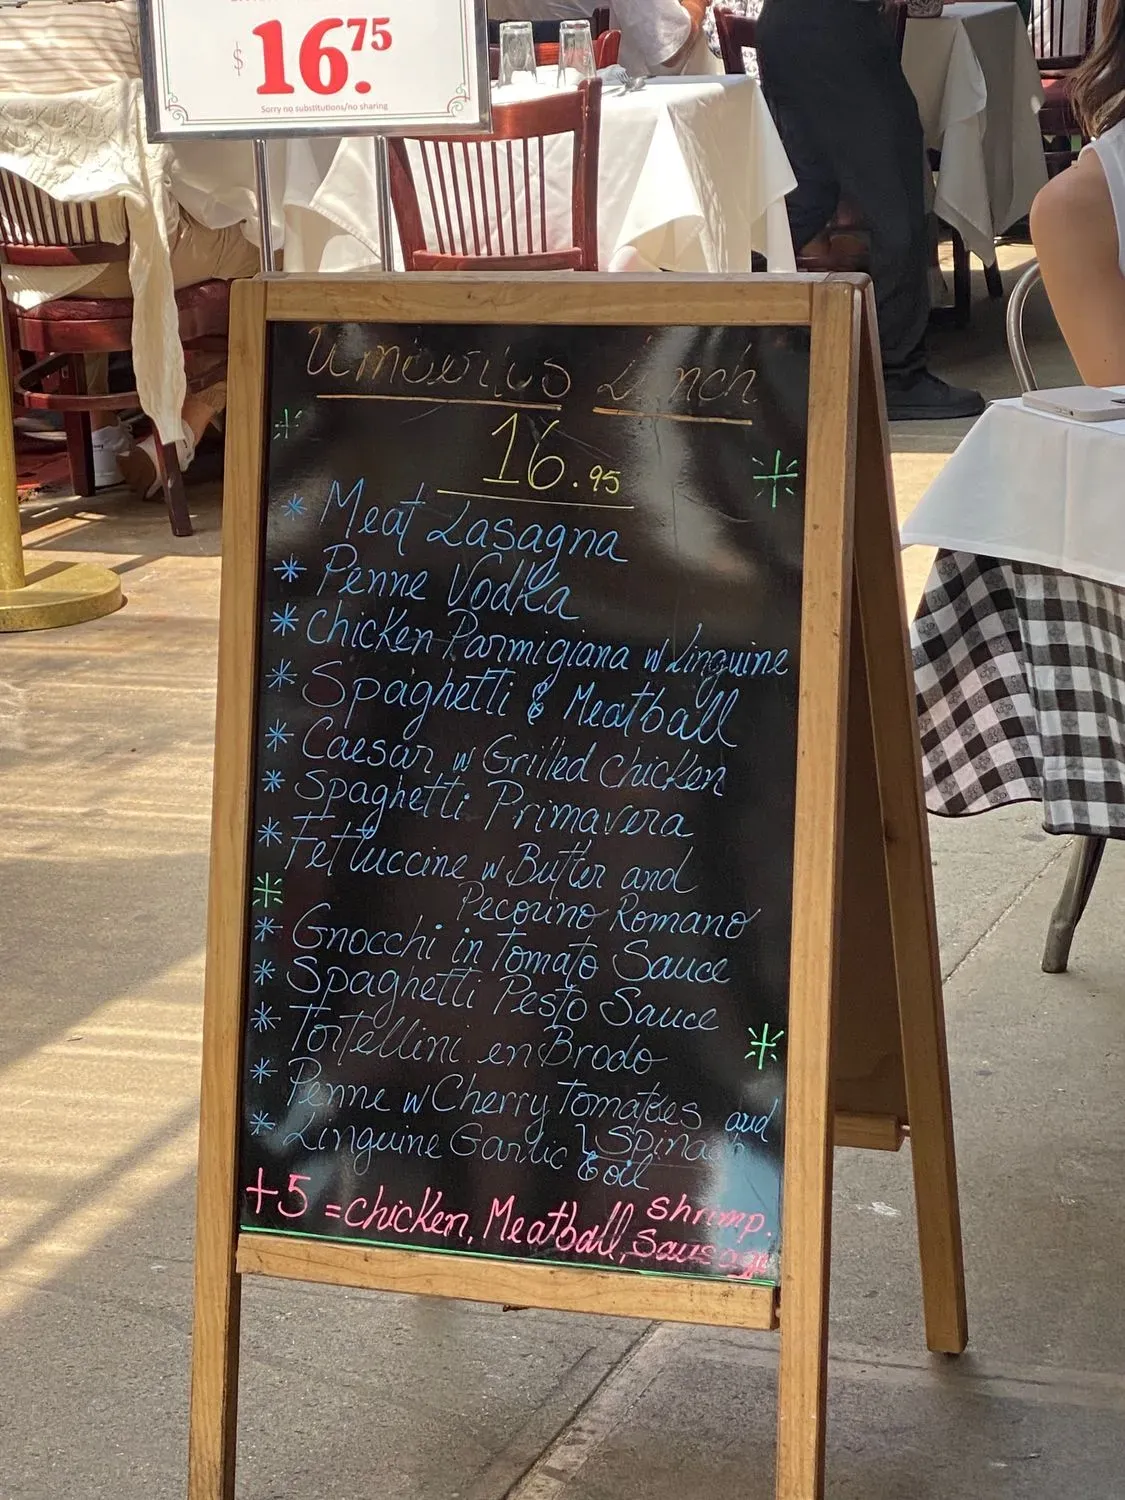 $16.75
Sorry no substitutions/no sharing
Lunch
16.95
* Meat Lasagna
* Penne Vodka
* Chicken Parmigiana w Linguine
* Spaghetti & Meatball
* Caesar w Grilled chicken
* Spaghetti Primavera
* Fettuccine w Butter and
Pecorino Romano
* Gnocchi in Tomato Sauce
* Spaghetti Pesto Sauce
* Tortellini en Brodo
* Penne w Cherry Tomatoes and
Spinach
* Linguine Garlic & oil
+5 = chicken, Meatball, shrimp.
Sausage